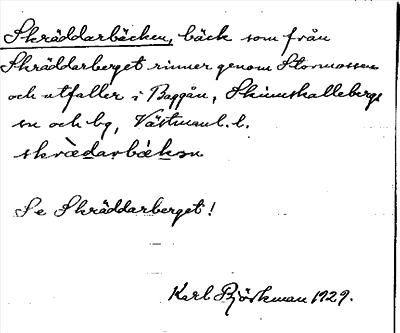 Skräddarbäcken, bäck som från
Skräddarberget rinner genom Stormossen
och utfaller i Baggån, Skinnskattebergs
sn och bg, Västmanl. l.
skrὰ̀darbäkən
Se Skräddarberget!
Karl Björkman 1929.